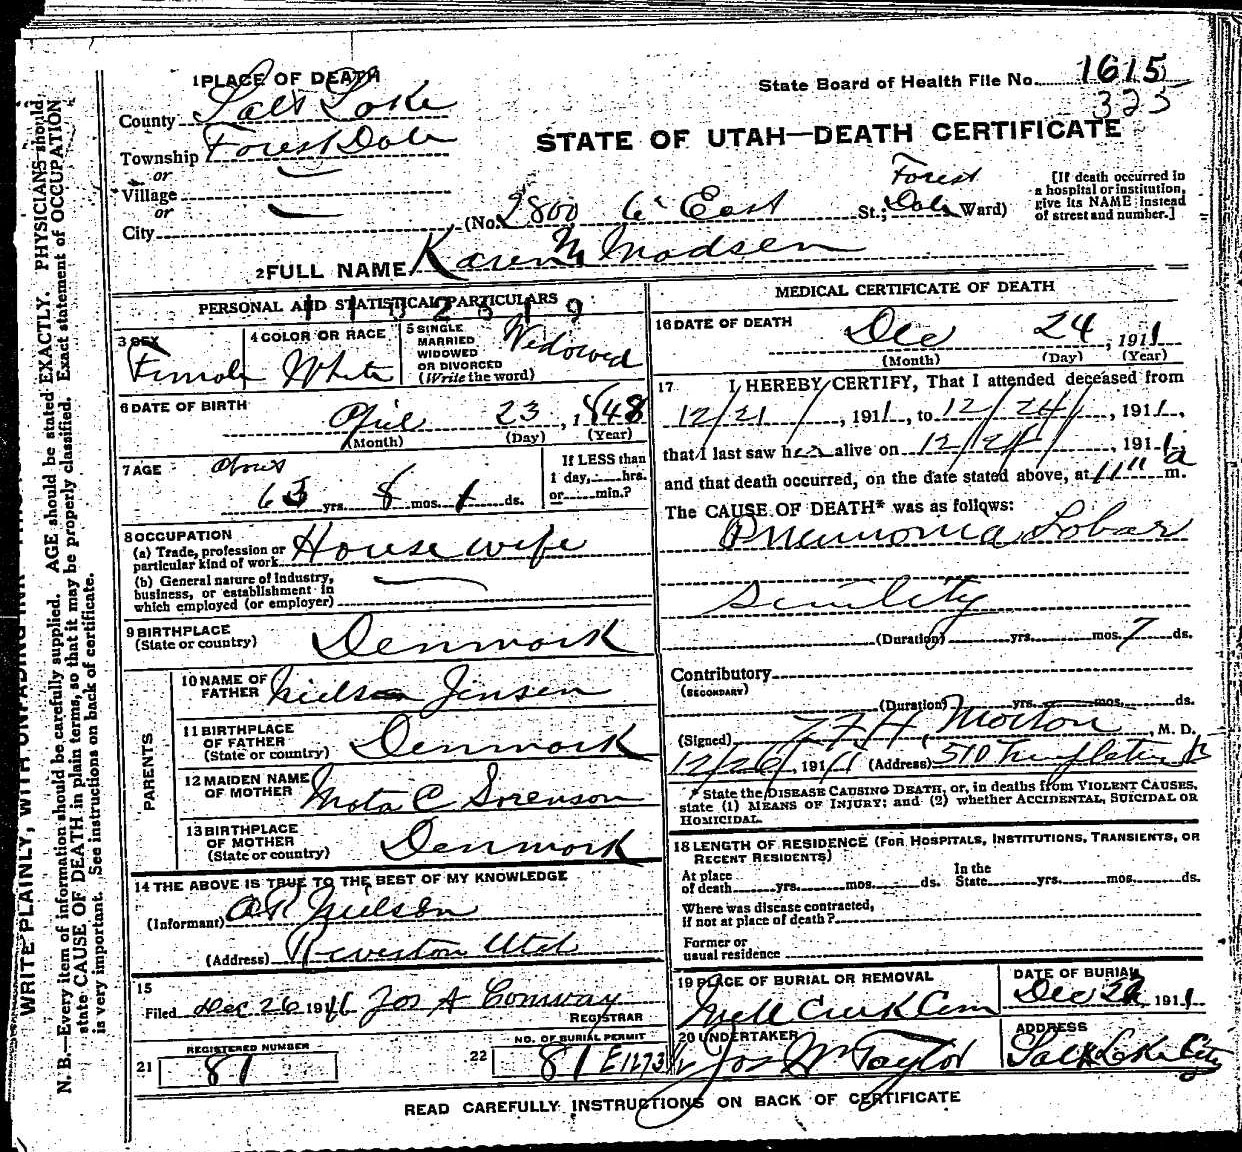 1 PLACE OF DEATH
State Board of Health File No. 1615
325
County Salt Lake
STATE OF UTAH—DEATH CERTIFICATE
Township Forest Dale
or
Village
or
City
(No. 2800 6" East St.; Forest Dale Ward)
[If death occurred in
a hospital or institution,
give its NAME instead
of street and number.]
2 FULL NAME Karen M Madsen
PERSONAL AND STATISTICAL PARTICULARS
3 SEX
Female
4 COLOR OR RACE
White
5 SINGLE
MARRIED
WIDOWED
OR DIVORCED
(Write the word)
Widowed
6 DATE OF BIRTH
April 23, 1848
(Month) (Day) (Year)
7 AGE
about
63 yrs. 8 mos. 1 ds.
If LESS than
1 day, hrs.
or min.?
8 OCCUPATION
(a) Trade, profession or
particular kind of work House wife
(b) General nature of Industry,
business, or establishment in
which employed (or employer)
9 BIRTHPLACE
(State or country) Denmark
PARENTS
10 NAME OF
FATHER Jensen
11 BIRTHPLACE
OF FATHER
(State or country) Denmark
12 MAIDEN NAME
OF MOTHER C Sorenson
13 BIRTHPLACE
OF MOTHER
(State or country) Denmark
14 THE ABOVE IS TRUE TO THE BEST OF MY KNOWLEDGE
(Informant) Nielson
(Address) Utah
15
Filed Dec 26 191 Jos A Conway
REGISTRAR
21 REGISTERED NUMBER
81
22 NO. OF BURIAL PERMIT
81 E1273
MEDICAL CERTIFICATE OF DEATH
16 DATE OF DEATH
Dec 24, 1911
(Month) (Day) (Year)
17 I HEREBY CERTIFY, That I attended deceased from
12/21/, 1911, to 12/24/, 1911,
that I last saw her alive on 12/24/, 1911,
and that death occurred, on the date stated above, at 11" a m.
The CAUSE OF DEATH* was as follows:
Pneumonia Lobar
Senility
(Duration) yrs. mos. 7 ds.
Contributory
(SECONDARY)
(Duration) yrs. mos. ds.
(Signed) Morton, M. D.
12/26/, 1911 (Address) 510 Templeton
* State the DISEASE CAUSING DEATH, or, in deaths from VIOLENT CAUSES,
state (1) MEANS OF INJURY; and (2) whether ACCIDENTAL, SUICIDAL OR
HOMICIDAL.
18 LENGTH OF RESIDENCE (FOR HOSPITALS, INSTITUTIONS, TRANSIENTS, OR
RECENT RESIDENTS)
At place
of death yrs. mos. ds.
In the
State yrs. mos. ds.
Where was disease contracted,
if not at place of death?
Former or
usual residence
19 PLACE OF BURIAL OR REMOVAL
Mill Creek Cem
DATE OF BURIAL
Dec 1911
20 UNDERTAKER
Jos Wm Taylor
ADDRESS
Salt Lake City
READ CAREFULLY INSTRUCTIONS ON BACK OF CERTIFICATE
WRITE PLAINLY, WITH UNFADING INK
N. B.—Every item of information should be carefully supplied. AGE should be stated EXACTLY. PHYSICIANS should
state CAUSE OF DEATH in plain terms, so that it may be properly classified. Exact statement of OCCUPATION
is very important. See instructions on back of certificate.